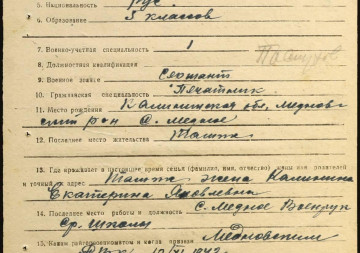 5. Национальность рус
6. Образование 5 классов
7. Военно-учетная специальность 1
8. Должностная квалификация
9. Военное звание Сержант
10. Гражданская специальность Печатник
11. Место рождения Калининская обл. Меднов-
ский р-он с. Медное
12. Последнее место жительства Там же
13. Где проживает в настоящее время семья (фамилия, имя, отчество) жены или родителей
и точный их адрес Там же жена Калинина
Екатерина Яковлевна
14. Последнее место работы и должность с. Медное Военрук
Ср. Школы
15. Каким райгорвоенкоматом и когда призван Медновским
РВК